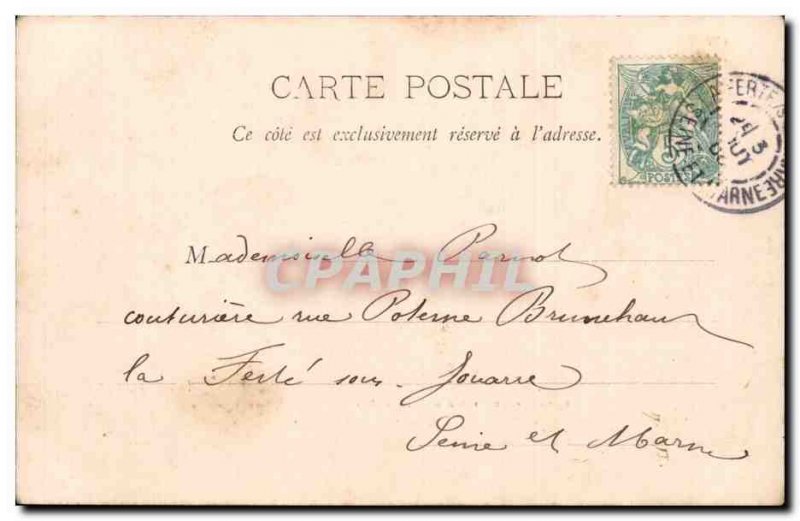 CARTE POSTALE
Ce côté est exclusivement réservé à l'adresse.
5
POSTES
SEINE ET MARNE
Mademoiselle Parnot
CPAPHIL
couturière rue Poterne Brunehaut
la Ferté sous Jouarre
Seine et Marne